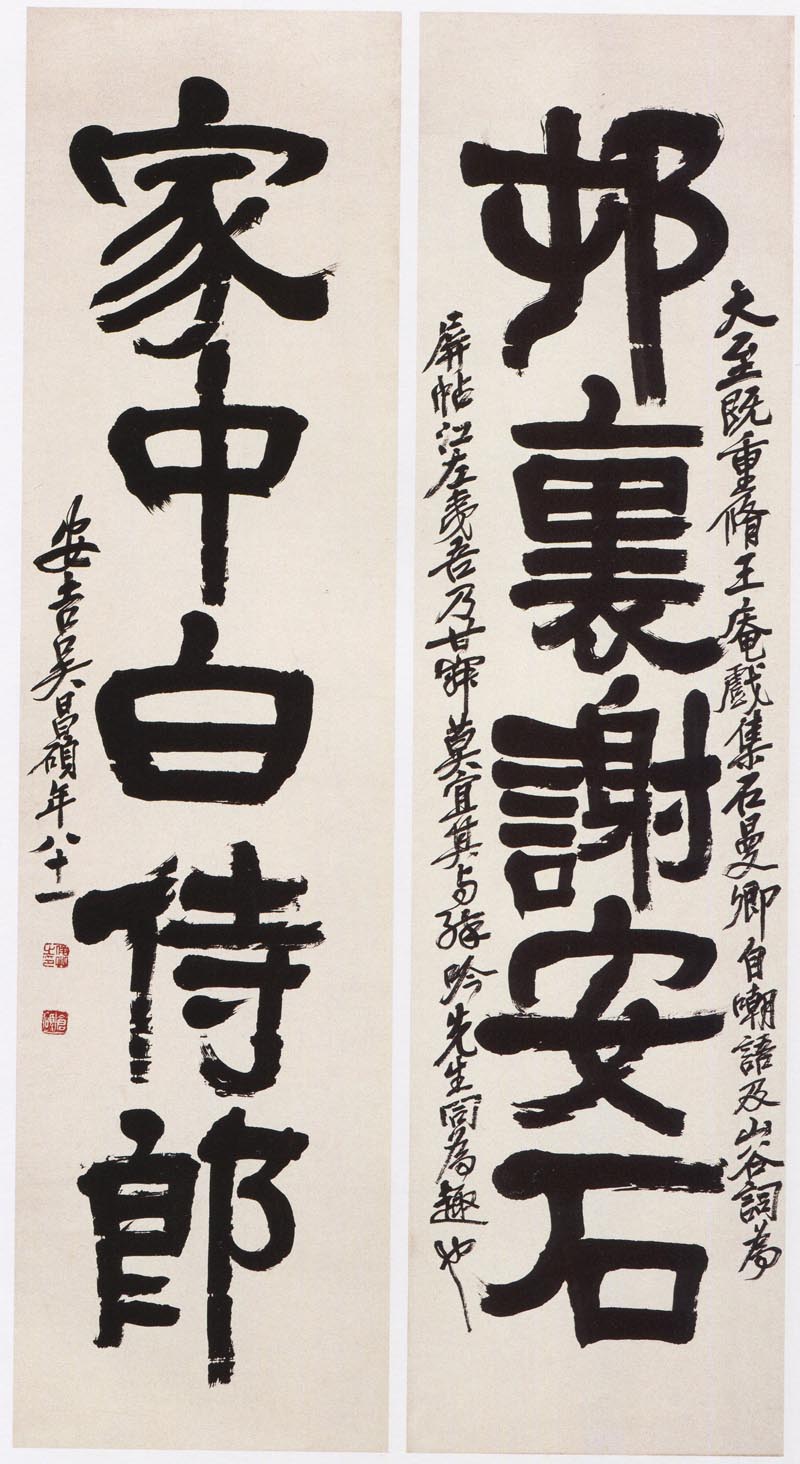 邨裏謝安石
大至既重脩王庵戲集石曼卿自嘲語及山谷詞為
屏帖江左夷吾乃甘寂莫宜其与醉吟先生同為趣也
家中白侍郎
安吉吳昌碩年八十一
俊卿之印
倉碩